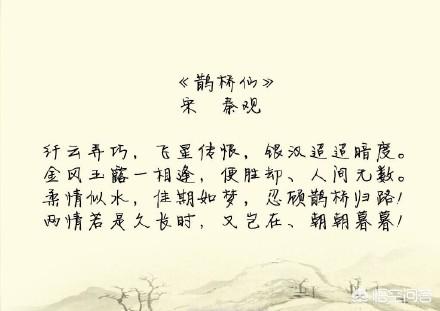 《鹊桥仙》
宋 秦观
纤云弄巧，飞星传恨，银汉迢迢暗度。
金风玉露一相逢，便胜却、人间无数。
柔情似水，佳期如梦，忍顾鹊桥归路！
两情若是久长时，又岂在、朝朝暮暮！
悟空问答